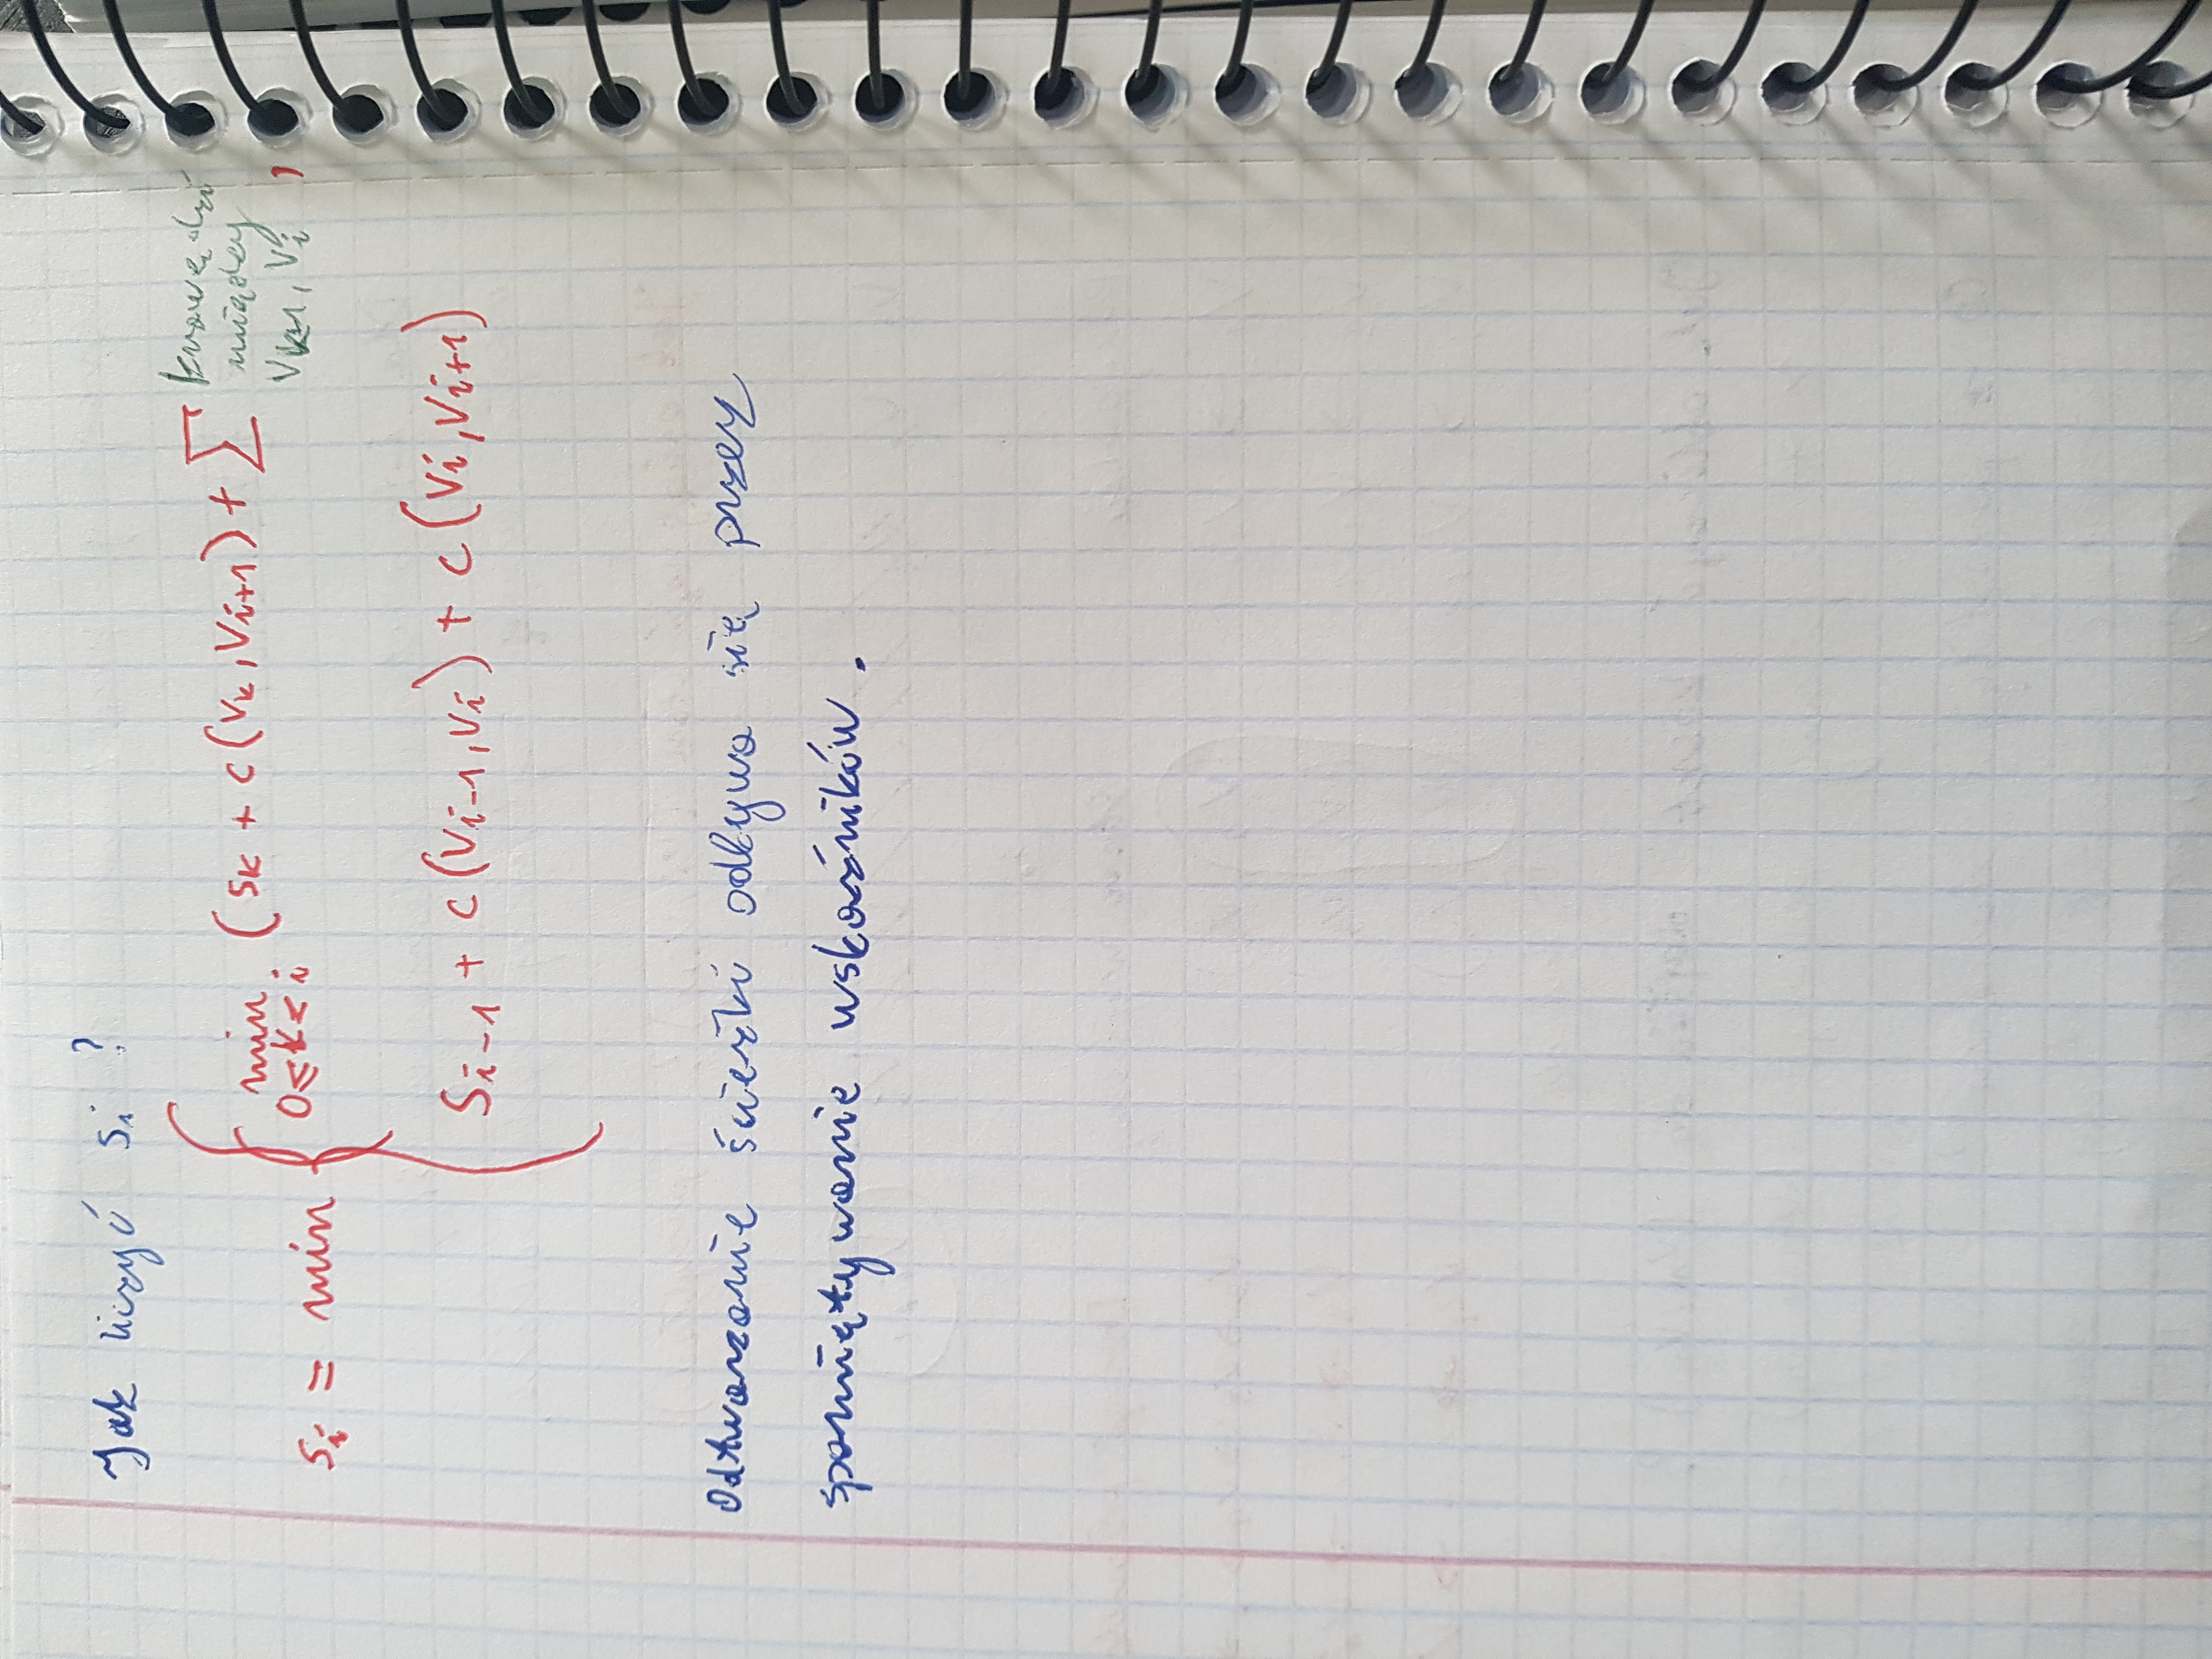 Jak liczyć si ?
si = min { min 0≤k<i (sk + c(vk, vi+1) + ∑ krawędzi między vk+1, vi ,
si-1 + c(vi-1, vi) + c(vi, vi+1)
Odtwarzanie ścieżki odbywa się przez
spamiętywanie wskaźników.